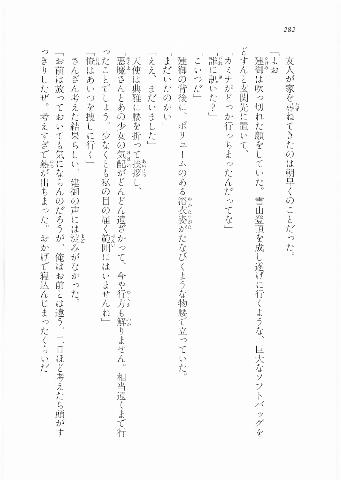 282
友人が家を尋ねてきたのは朝早くのことだった。
「よお」
建御は吹っ切れた顔をしていた。雪山登頂を成し遂げに行くような、巨大なソフトバッグを
どすんと玄関先に置いて、
「カミナがどっか行っちまったんだってな」
「誰に訊いた？」
「こいつだ」
建御の背後に、ボリュームのある浴衣姿がたなびくような物腰で立っていた。
「まだいたのか」
「ええ、まだいました」
天使は典雅に腰を折って挨拶し、
「悪魔さんとあの少女の気配がどんどん遠ざかって、今や行方も解りません。相当遠くまで行
ったことでしょう。少なくとも私の目の届く範囲にはいませんね」
「俺はあいつを捜しに行く」
さんざん考えた結果らしい。建御の声には淀みがなかった。
「お前は放っておいても気にならんのだろうが、俺はお前とは違う。二日ほど考えたら頭がす
っきりしたぜ。考えすぎて熱が出ちまった。おかげで寝込んじまったくらいだ